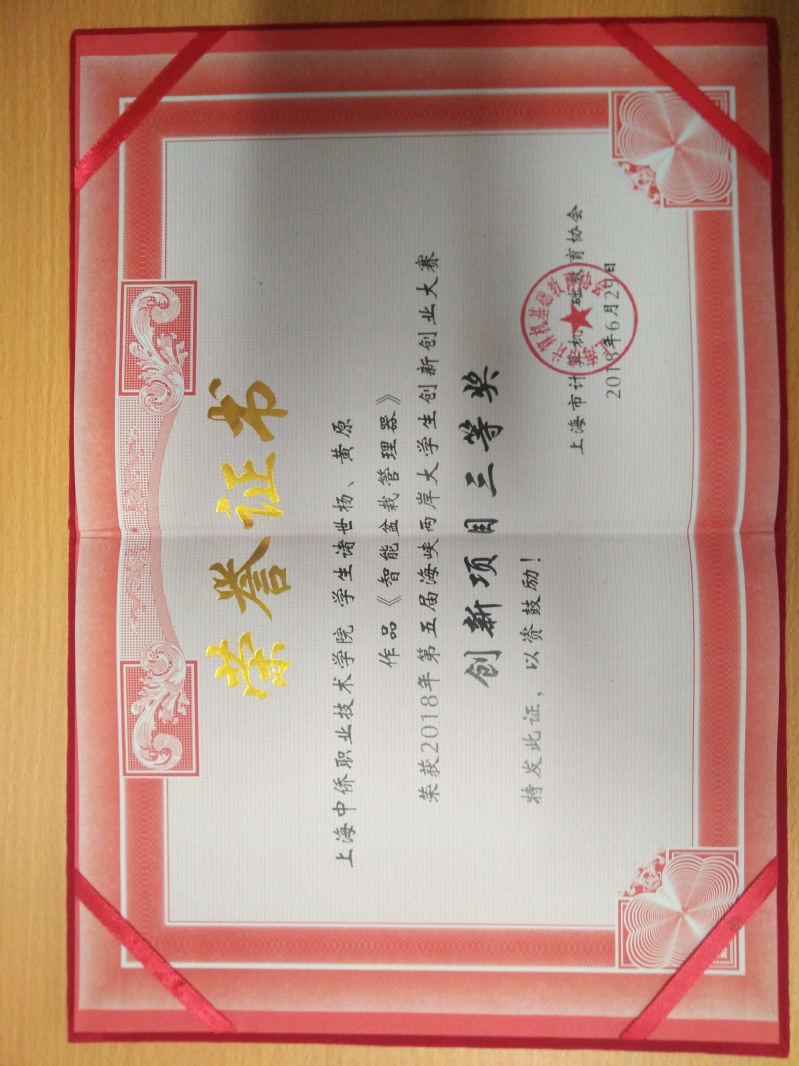 荣誉证书
上海中侨职业技术学院 学生诸世杨、黄原
作品《智能盆栽管理器》
荣获2018年第五届海峡两岸大学生创新创业大赛
创新项目三等奖
特发此证，以资鼓励！
上海市计算机基础教育协会
2018年6月20日